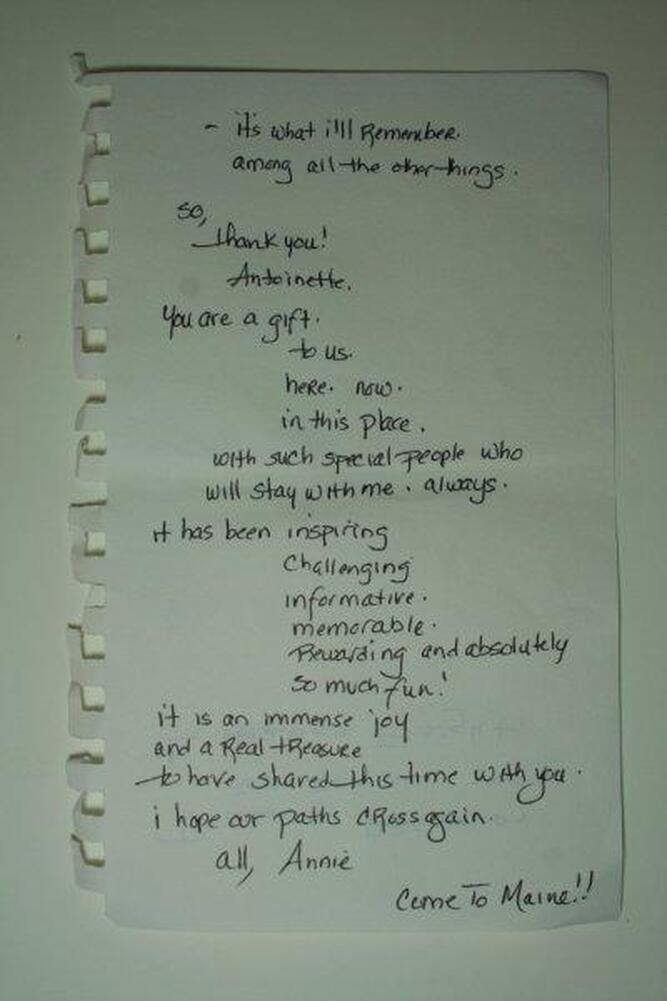 - it's what i'll Remember.
among all the other things.
so,
thank you!
Antoinette.
You are a gift.
to us.
here. now.
in this place.
with such special people who
will stay with me. always.
it has been inspiring
Challenging
informative.
memorable.
Rewarding and absolutely
so much fun!
it is an immense joy
and a Real tReasuRe
to have shared this time with you.
i hope our paths cRoss again.
all, Annie
Come To Maine!!